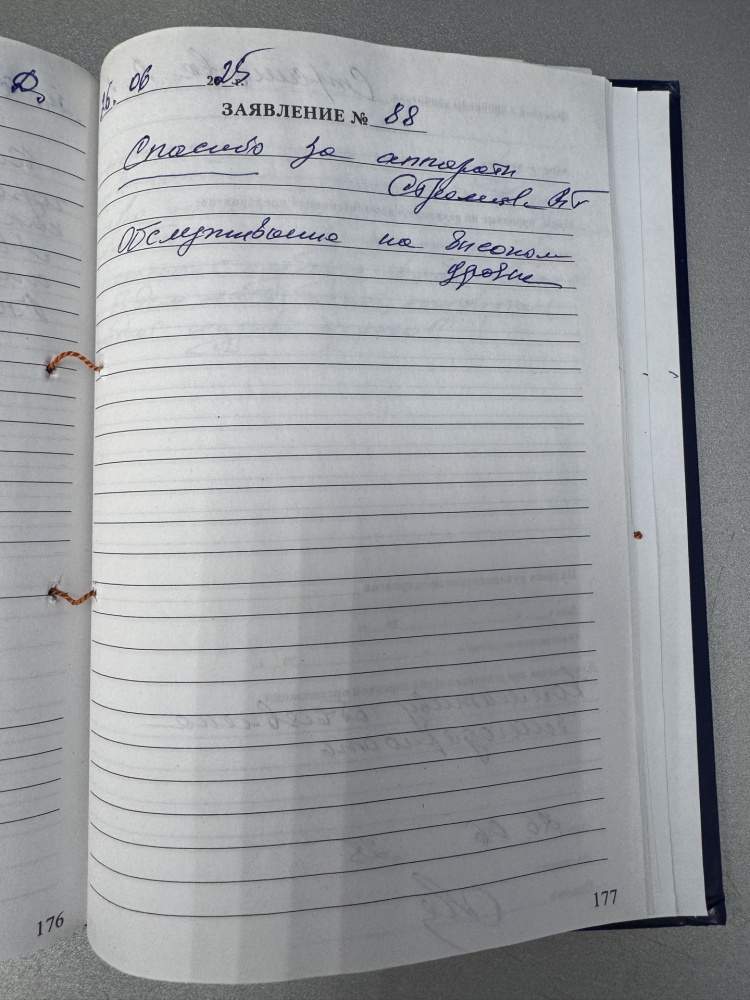 26. 06 2025 г.
ЗАЯВЛЕНИЕ № 88
Спасибо за аппарати
Обслуживание на високом
уровне
176
177